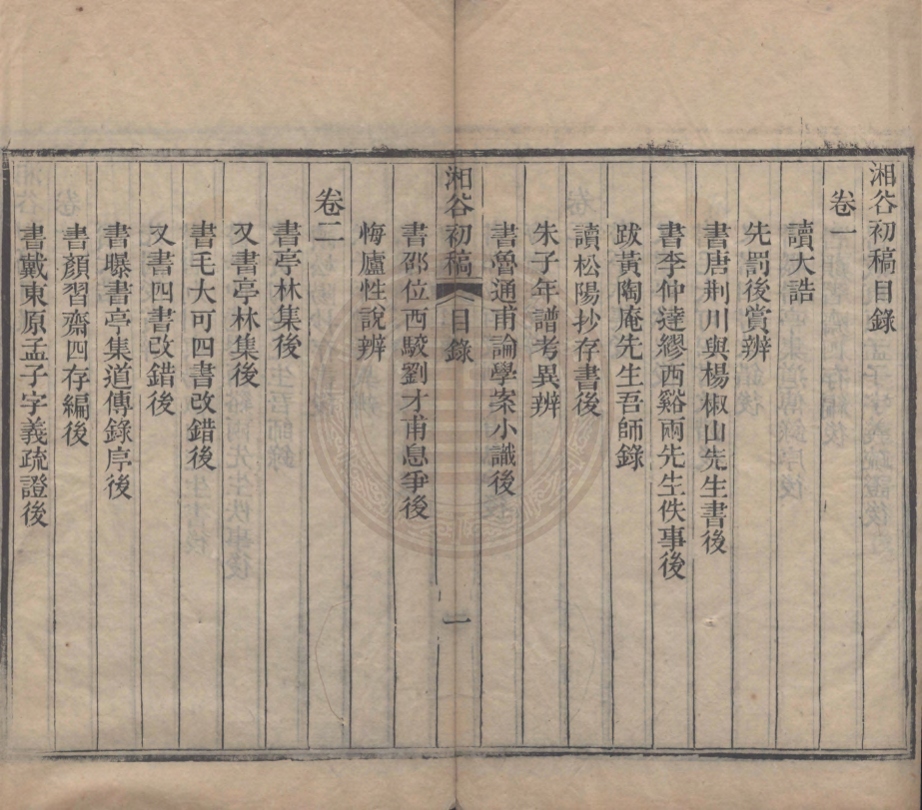 湘谷初稿目錄
卷一
讀大誥
先罰後賞辨
書唐荆川與楊椒山先生書後
書李仲達繆西谿兩先生佚事後
跋黃陶庵先生吾師錄
讀松陽抄存書後
朱子年譜考異辨
書魯通甫論學案小識後
書邵位西駮劉才甫息爭後
悔廬性說辨
湘谷初稿 目錄 一
卷二
書亭林集後
又書亭林集後
書毛大可四書改錯後
又書四書改錯後
書曝書亭集道傳錄序後
書顏習齋四存編後
書戴東原孟子字義疏證後